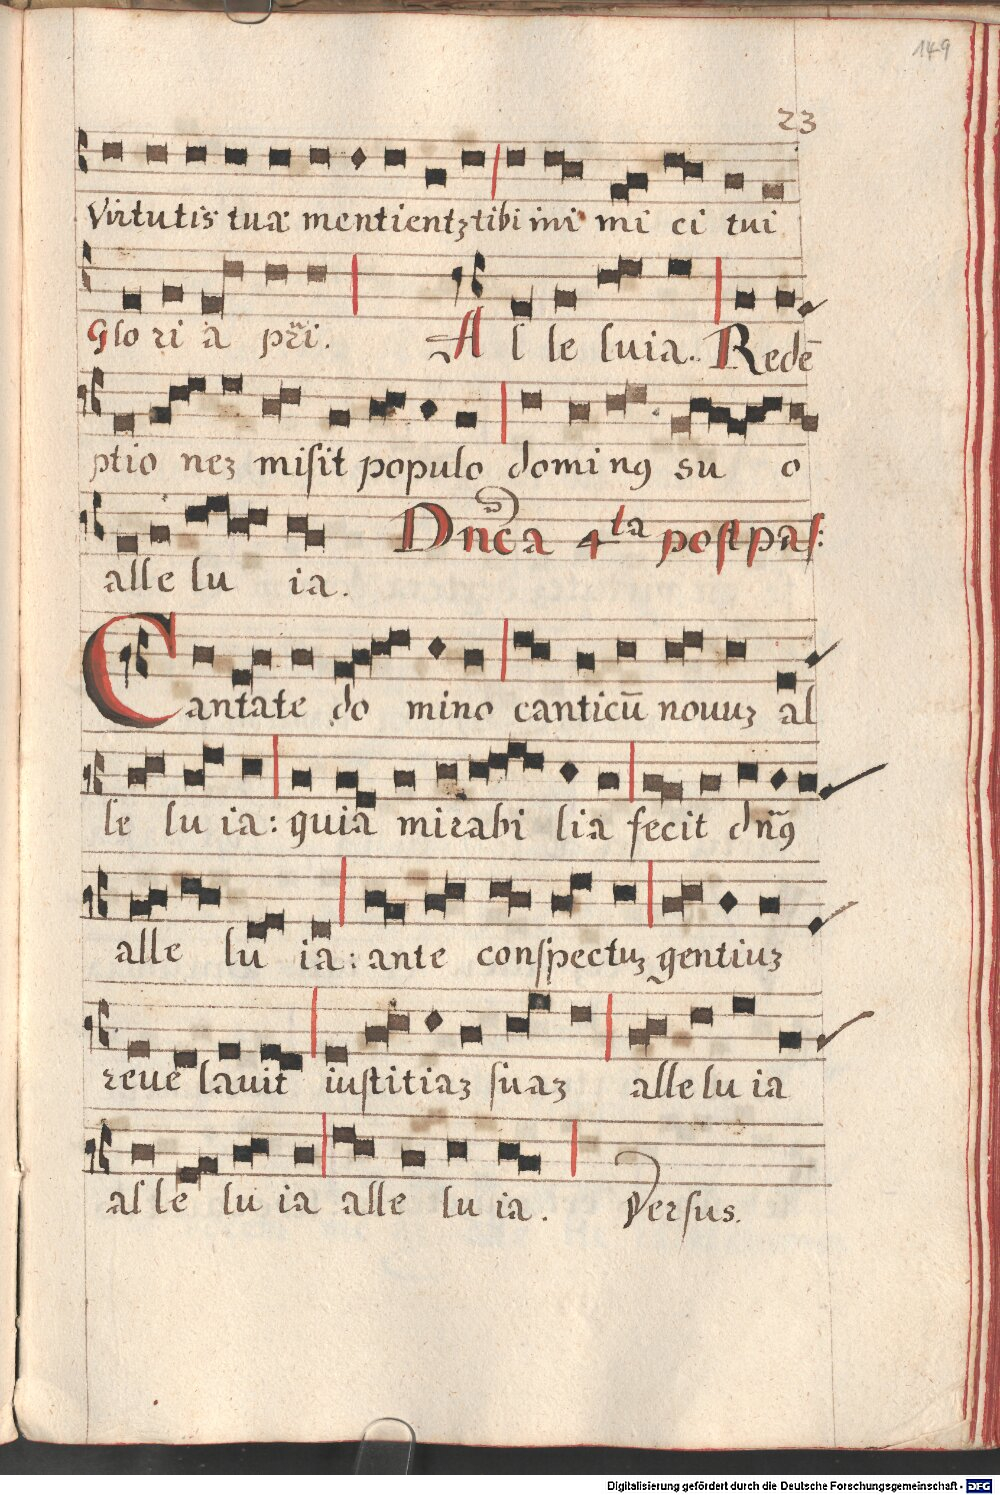 149
23
Virtutis tuæ mentientꝫ tibi ini mi ci tui
Glo ri a pr̃i. Al le luia. Redē
ptio neꝫ misit populo domi nꝰ su o
alle lu ia. Dnc̃a 4ta post pas:
Cantate do mino canticū nouuꝫ al
le lu ia: quia mirabi lia fecit dñꝰ
alle lu ia: ante conspectuꝫ gentiuꝫ
reue lauit iustitiaꝫ suaꝫ alle lu ia
alle lu ia alle lu ia. Versus.
Digitalisierung gefördert durch die Deutsche Forschungsgemeinschaft - DFG